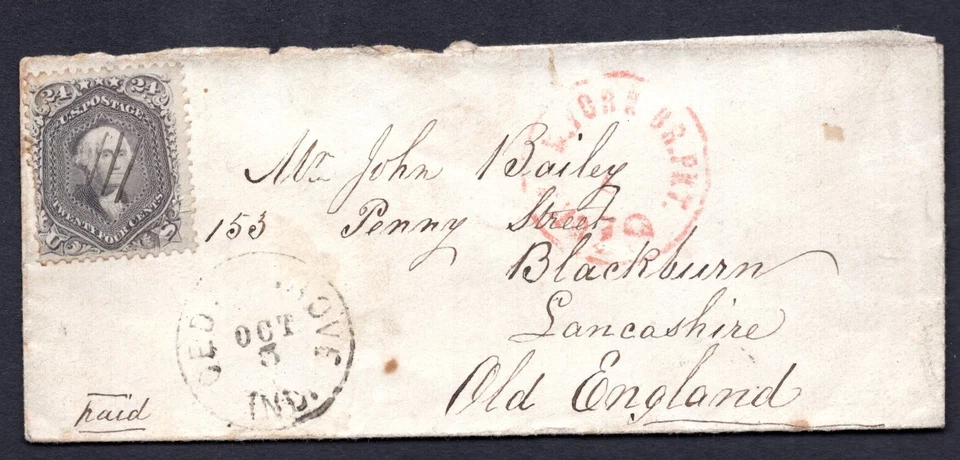 24 24
U.S. POSTAGE
TWENTY FOUR CENTS
U S
Mr John Bailey
153 Penny Street
Blackburn
Lancashire
Old England
paid
OCT
3
IND.
BR. PKT.
PAID